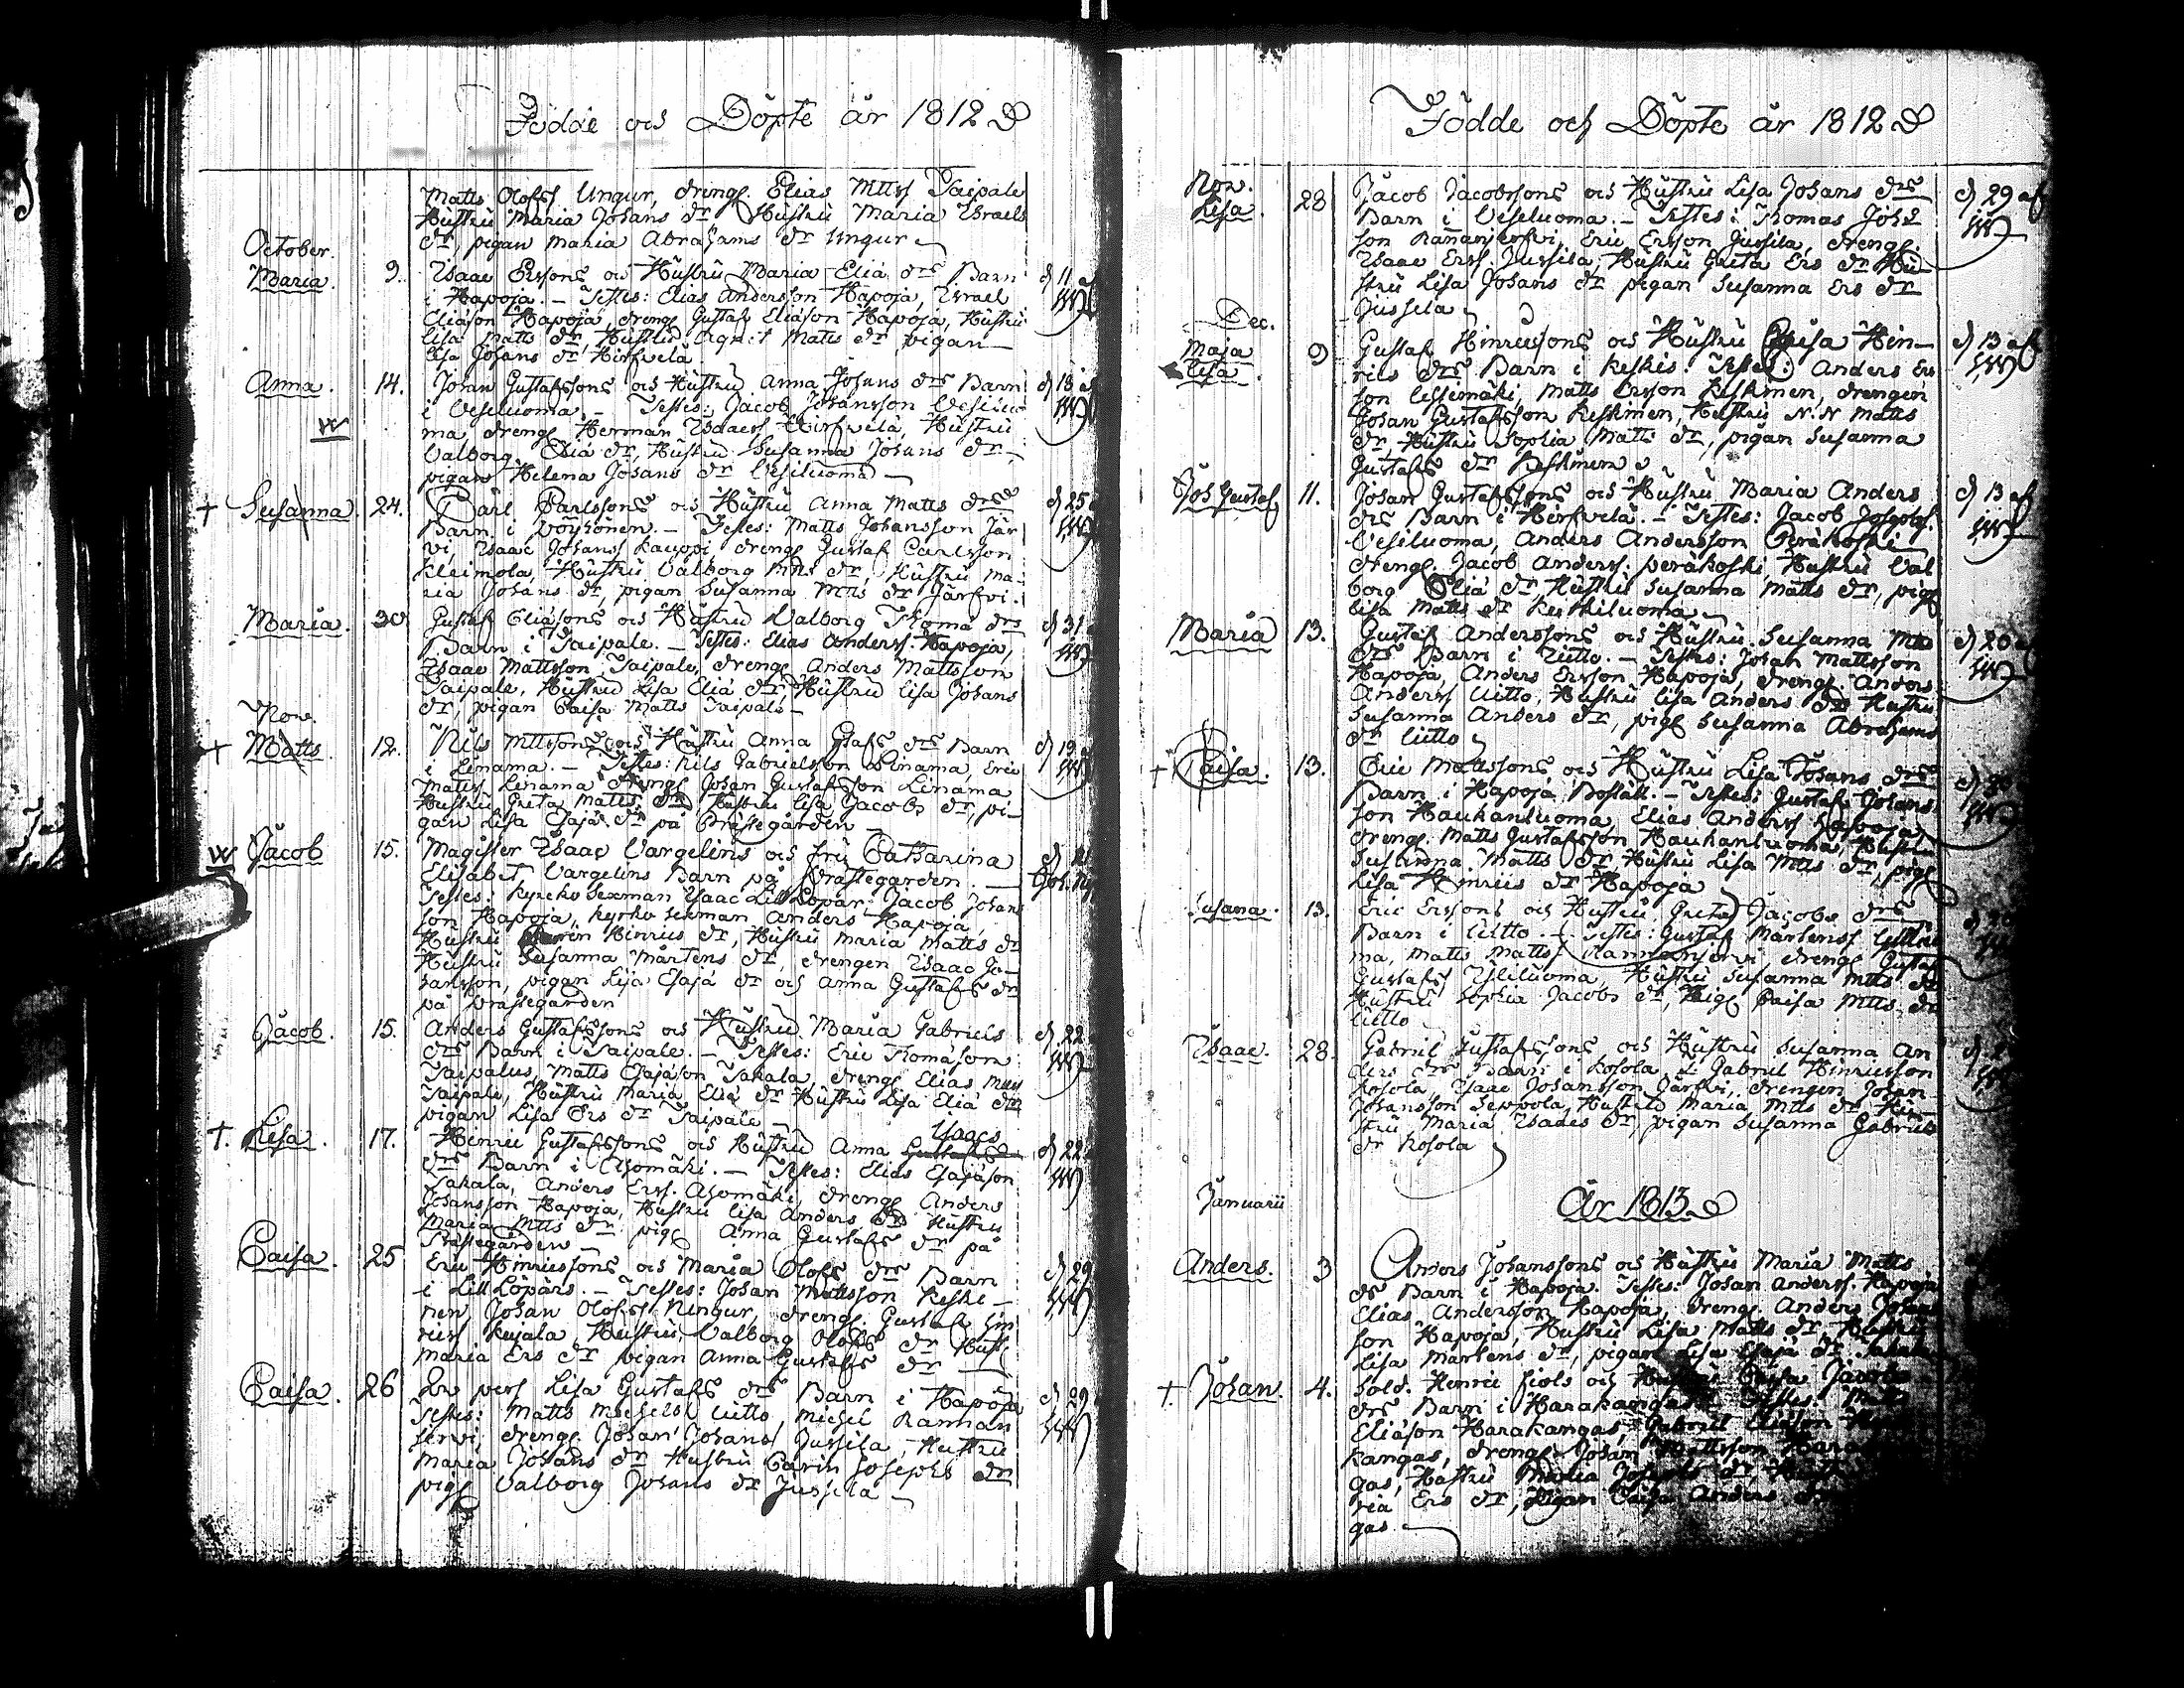 Födde och Döpte år 1812
Matts Olofss Ungur, drengs. Elias Mttss Saipale
Hustru Maria Johans dr Hustru Maria Israels
October.
dr, pigan Maria Abrahams dr Ungur
Maria. 9. Isaac Erssons och Hustru Maria Eliæ drs Barn d 11
i Hapoja. – Testes: Elias Andersson Hapoja, Israel
Eliæson Hapoja, drengs Gustaf Eliæson Hapoja, Hustru
Lisa Matts dr Hustru Agnit Matts dr pigan
Lisa Johans dr Hirfvelä
Anna. 14. Johan Gustafssons och Hustru Anna Johans drs Barn d 18
i Vesiluoma. – Testes: Jacob Johansson Vesiluo
ma drengs Herman Isaacss Hirfvelä, Hustru
Valborg Eliæ dr, Hustru Susanna Johans dr
pigan Helena Johans dr Vesiluoma
+ Susanna. 24. Carl Carlssons och Hustru Anna Matts drs d 25
Barn i Pöyhönen. – Testes: Matts Johansson Jär
vi, Isaac Johanss Kauppi drengs Gustaf Carlsson
Kleimola, Hustru Valborg Mtts dr, Hustru Ma-
ria Johans dr, pigan Susanna Mtts dr Järfvi.
Maria. 30 Gustaf Eliæsons och Hustru Valborg Thomæ drs d 31
Barn i Saipale. – Testes: Elias Anderss. Hapoja,
Isaac Mattsson Saipale, drengs Anders Mattsson
Saipale, Hustru Lisa Eliæ dr Hustru Lisa Johans
dr, pigan Caisa Matts Saipale
Nov.
+ Matts 12. Nils Mttssons och Hustru Anna Gstafs drs Barn d 19
i Linama. – Testes: Nils Gabrielsson Linama, Eric
Matss Linama drengs Johan Gustafsson Linama
Hustru Greta Matts dr Hustru Lisa Jacobs dr, pi-
gan Lisa Esajæ dr på Prästegården
W Jacob 15. Magister Isaac Vargelins och fru Catharina
Elisabet Vargelins Barn på Prästegården.
Testes: Kyrcko Sexman Isaac Lill Löpar. Jacob Johans
son Hapoja, Kyrko sexman Anders Hapoja,
Hustru Carin Hinrics dr, Hustru Maria Matts dr
Hustru Susanna Mårtens dr, drengen Isaac Jo-
hansson, pigan Lisa Esajæ dr och Anna Gustafs dr
på Prästegården
Jacob. 15. Anders Gustafssons och Hustru Maria Gabriels d 22
drs Barn i Saipale. – Testes: Eric Thomæson
Saipalus, Matts Esajæson Sakala, drengs Elias Mttss
Saipale, Hustru Maria Eliæ dr Hustru Lisa Eliæ dr
pigan Lisa Ers dr Saipale
+. Lisa. 17. Henric Gustafssons och Hustru Anna Isaacs d 22
drs Barn i Asomäki. – Testes: Elias Esajæson
Sakala, Anders Erss. Asomäki, drengs Anders
Johansson Hapoja, Hustru Lisa Anders dr Hustru
Maria Mtts dr, pigs Anna Gustafs dr på
Prästegården
Caisa. 25 Eric Hinricssons och Maria Olofs drs Barn d 29
i Lill Löpars. – Testes: Johan Mattsson Keski-
nen Johan Olofss Ungur, drengs. Gustaf Hin
ricss Kujala, Hustru Valborg Olofs dr Hust
Maria Ers dr pigan Anna Gustafs dr
Caisa. 26 Lisa Gustafs drs Barn i Hapoja d 29
Testes: Matts Michelss Uitto, Michel Rannan
jervi, drengs. Johan Johanss Jussila, Hustru
Maria Johans dr Hustru Carin Josephs dr
pigs Valborg Johans dr Jussila
Födde och Döpte år 1812
Nov.
Lisa. 28 Jacob Jacobssons och Hustru Lisa Johans drs d 29
Barn i Vesiluoma. – Testes: Thomas Johs
son Rannanjerfvi, Eric Ersson Jussila, drengs.
Isaac Erss. Jussila, Hustru Greta Ers dr Hu-
stru Lisa Johans dr pigan Susanna Ers dr
Jussila
Dec.
Maja Lisa 9 Gustaf Hinricssons och Hustru Caisa Hin- d 13
rics drs Barn i Keskis. Testes: Anders Ers
son Lissimäki, Matts Ersson Keskinen, drengen
Johan Gustafsson Keskinen, Hustru N.N Matts
dr, Hustru Sophia Matts dr, pigan Susanna
Gustafs dr Keskinen
Joh Gustaf 11. Johan Gustafssons och Hustru Maria Anders d 13
drs Barn i Hirfvelä. – Testes: Jacob
Vesiluoma, Anders Andersson Peräkoski
drengs. Jacob Anderss. Peräkoski Hustru Val
borg Eliæ dr, Hustru Susanna Matts dr, pigs
Lisa Matts dr Keskiluoma
Maria 13. Gustaf Anderssons och Hustru Susanna Mtts d 20
drs Barn i Uitto. – Testes: Johan Mattsson
Hapoja, Anders Ersson Hapoja, drengs Anders
Anderss Uitto, Hustru Lisa Anders dr Hustru
Susanna Anders dr, pigs Susanna Abrahams
dr Uitto
+ Caisa. 13. Eric Matssons och Hustru Lisa Johans drs
Barn i Hapoja Boställ. – Testes: Gustaf Johans
son Haukanluoma, Elias Anderss Hapoja
drengs. Matts Gustafsson Haukanluoma, Hustru
Susanna Matts dr Hustru Lisa Mtts dr, pigs
Lisa Hinrics dr Hapoja
Susana. 13. Eric Erssons och Hustru Greta Jacobs drs
Barn i Uitto. – Testes: Gustaf Mårtenss
ma, Matts Mattss Rannanjervi, drengs Gustaf
Gustafs, Yliluoma, Hustru Susanna Mtts dr
Hustru Sophia Jacobs dr, Pigs Caisa Mtts dr
Uitto
Isaac. 28. Gabriel Gustafssons och Hustru Susanna An
ders drs Barn i Kosola. Gabriel Hinricsson
Kosola, Isaac Johansson Järfvi, drengen Johan
Johansson Seppola, Hustru Maria Mtts dr, Hu-
stru Maria Isaacs dr, pigan Susanna Gabriels
dr Kosola
Januarii År 1813
Anders. 3 Anders Johanssons och Hustru Maria Matts
drs Barn i Hapoja. Testes: Johan Anderss. Hapoja
Elias Andersson Hapoja, drengs. Anders Johans
son Hapoja, Hustru Lisa Matts dr Hustru
Lisa Mårtens dr, pigan Lisa Esajæ dr
+ Johan. 4. Sold. Henric och Hustru Jacobs
drs Barn i Harakangas. Testes:
Eliæson Harakangas, Gabriel Eliæson
kangas, drengs Johan Mattsson
gas, Hustru Maria Josephs dr,
ria Ers dr, pigan Caisa Anders
gas